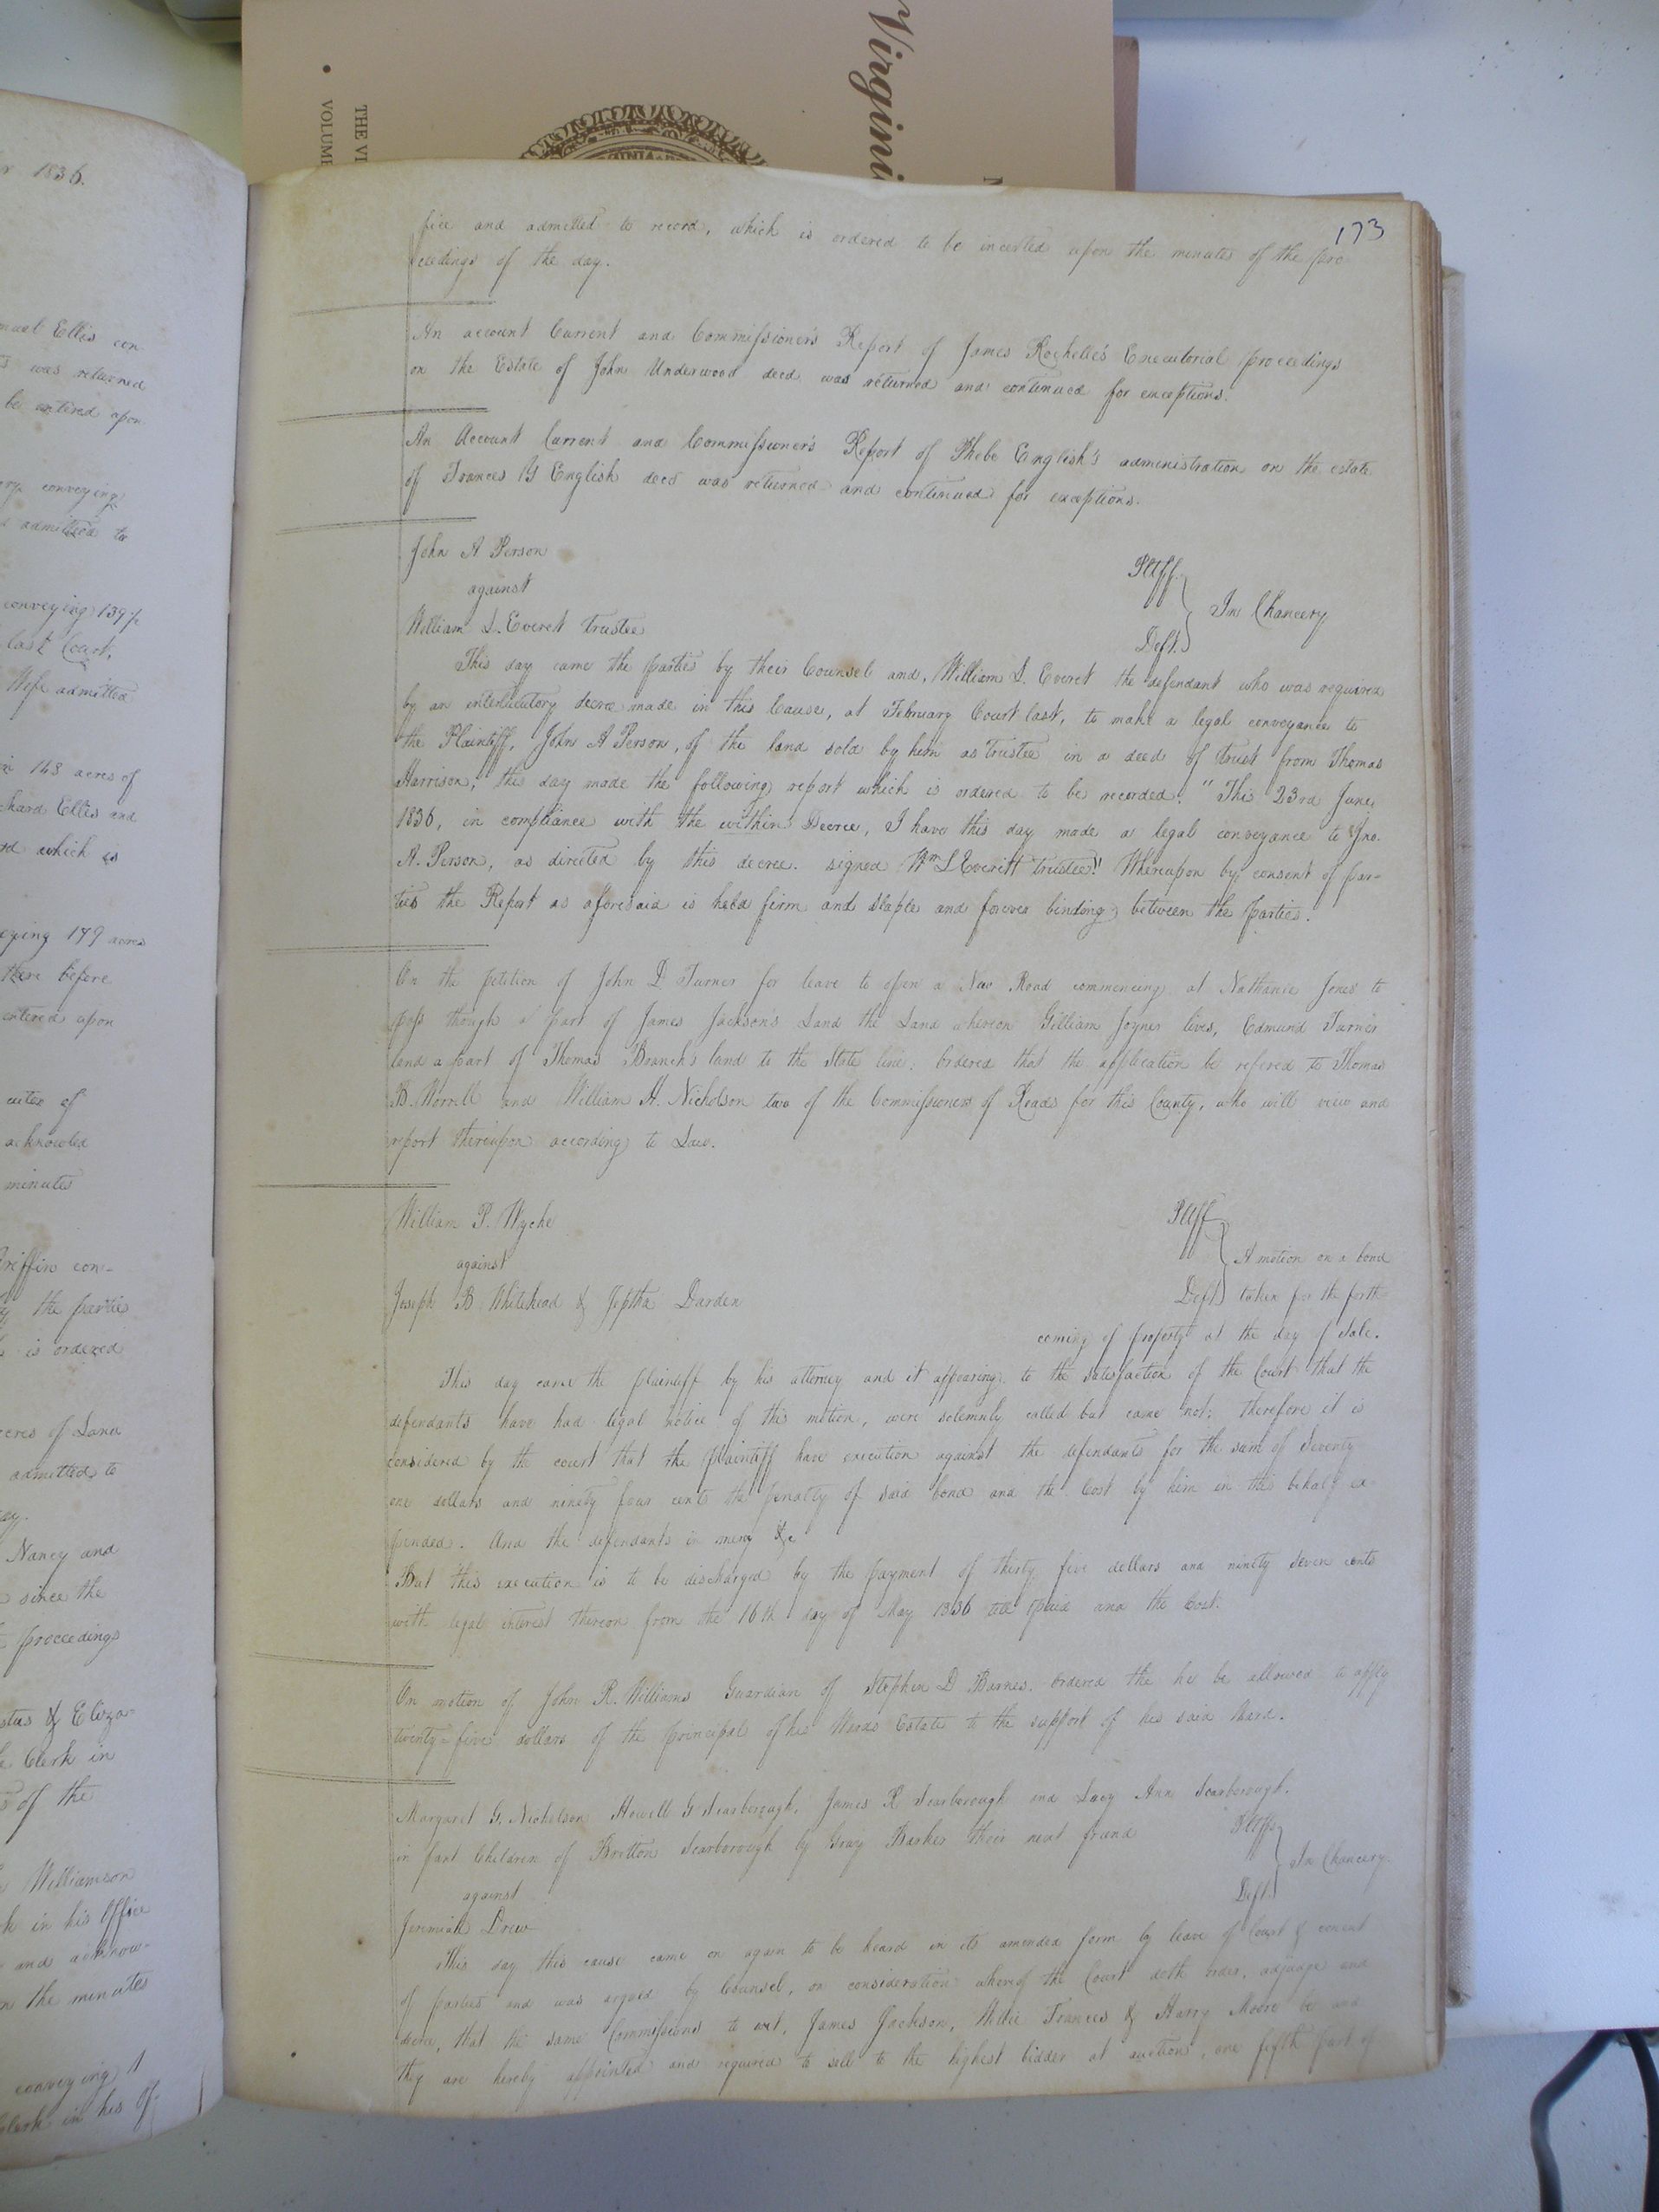 Virgini
THE VI
VOLUME
173
fice and admitted to record, which is ordered to be incerted upon the minutes of the pro-
ceedings of the day.
An account Current and Commissioner's Report of James Rochelle's Executorial proceedings
on the Estate of John Underwood decd was returned and continued for exceptions.
An Account Current and Commissioner's Report of Phebe English's administration on the estate
of Frances Y English decd was returned and continued for exceptions.
John A Person Pltff.
against In Chancery
William L. Everet Trustee Deft.
This day came the parties by their Counsel and, William L. Everet the defendant who was required
by an interlocutory decree made in this Cause, at February Court last, to make a legal conveyance to
the Plaintiff, John A Person, of the land sold by him as Trustee in a deed of trust from Thomas
Harrison, this day made the following report which is ordered to be recorded. "This 23rd June,
1836, in compliance with the within Decree, I have this day made a legal conveyance to Jno.
A. Person, as directed by this decree. signed Wm L Everitt trustee" Whereupon by consent of par-
ties the Report as aforesaid is held firm and staple and forever binding between the parties.
On the petition of John D Turner for leave to open a New Road commencing at Nathaniel Jones' to
pass though a part of James Jackson's Land the Land whereon Gilliam Joyner lives, Edmund Turner's
land a part of Thomas Branch's land to the State line. Ordered that the application be refered to Thomas
B. Worrell and William H. Nicholson two of the Commissioners of Roads for this County, who will view and
report thereupon according to Law.
William P. Wyche Pltff
against A motion on a bond
Joseph B. Whitehead & Jeptha Darden Defts taken for the forth
coming of property at the day of Sale.
This day came the plaintiff by his attorney and it appearing to the satisfaction of the Court that the
defendants have had legal notice of this motion, were solemnly called but came not; therefore it is
considered by the court that the plaintiff have execution against the defendants for the sum of Seventy
one dollars and ninety four cents the penalty of said bond and the Cost by him in this behalf ex-
pended. And the defendants in mercy &c
But this execution is to be discharged by the payment of thirty five dollars and ninety seven cents
with legal interest thereon from the 16th day of May 1836 till paid and the Cost.
On motion of John R. Williams Guardian of Stephen D Barnes. Ordered the he be allowed to apply
twenty-five dollars of the principal of his Wards Estate to the support of his said Ward.
Margaret G. Nicholson Howell G Scarborough, James R Scarborough and Lucy Ann Scarborough.
in fant Children of Britton Scarborough by Gray Barker their next friend Pltffs
against In Chancery
Jeremiah Drew Deft.
This day this cause came on again to be heard in its amended form by leave of Court & consent
of parties and was argued by Counsel, on consideration whereof the Court doth order, adjudge and
decree, that the same Commissions to wit, James Jackson, Frances & Harry Moore be and
they are hereby appointed and required to sell to the highest bidder at auction, one fifth part of
1836.
Ellis con
was returned
be entered upon
conveying
admitted to
conveying 139½
last Court,
Wife admitted
148 acres of
Ellis and
which is
179 acres
there before
entered upon
of
minutes
Griffin con-
the partie
is ordered
of Land
admitted to
Nancy and
since the
proceedings
& Eliza-
Clerk in
of the
Williamson
in his Office
and acknow-
the minutes
conveying 1
in his Of